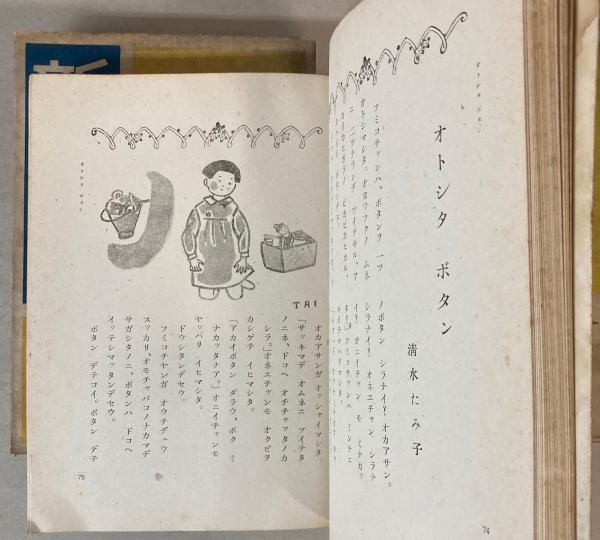 オトシタ ボタン
オトシタ ボタン
清水たみ子
フミコチャンハ、ボタンヲ 一ツ
オトシマシタ。オヨウフクノ ムネ
ニ 二ツナランデ ツイテヰル、ア
ノボタン シラナイ？ オカアサン。
シラナイ？ オネエチャン、シラナ
イ？ オニイチャン モ ミナカッ
74
オトシタ ボタン
TAI
オカアサンガ オッシャイマシタ
「サッキマデ オムネニ ツイテタ
ノニネ、ドコヘ オチチャッタノカ
シラ。」オネエチャンモ オクビヲ
カシゲテ イヒマシタ。
「アカイボタン ダラウ、ボク ミ
ナカッタナア。」オニイチャンモ
ヤッパリ イヒマシタ。
ドウシタンデセウ。
フミコチヤンガ オウチヂュウ
スッカリ、オモチャバコノナカマデ
サガシタノニ、ボタンハ ドコヘ
イッテシマッタンデセウ。
ボタン デテコイ。ボタン デテ
75